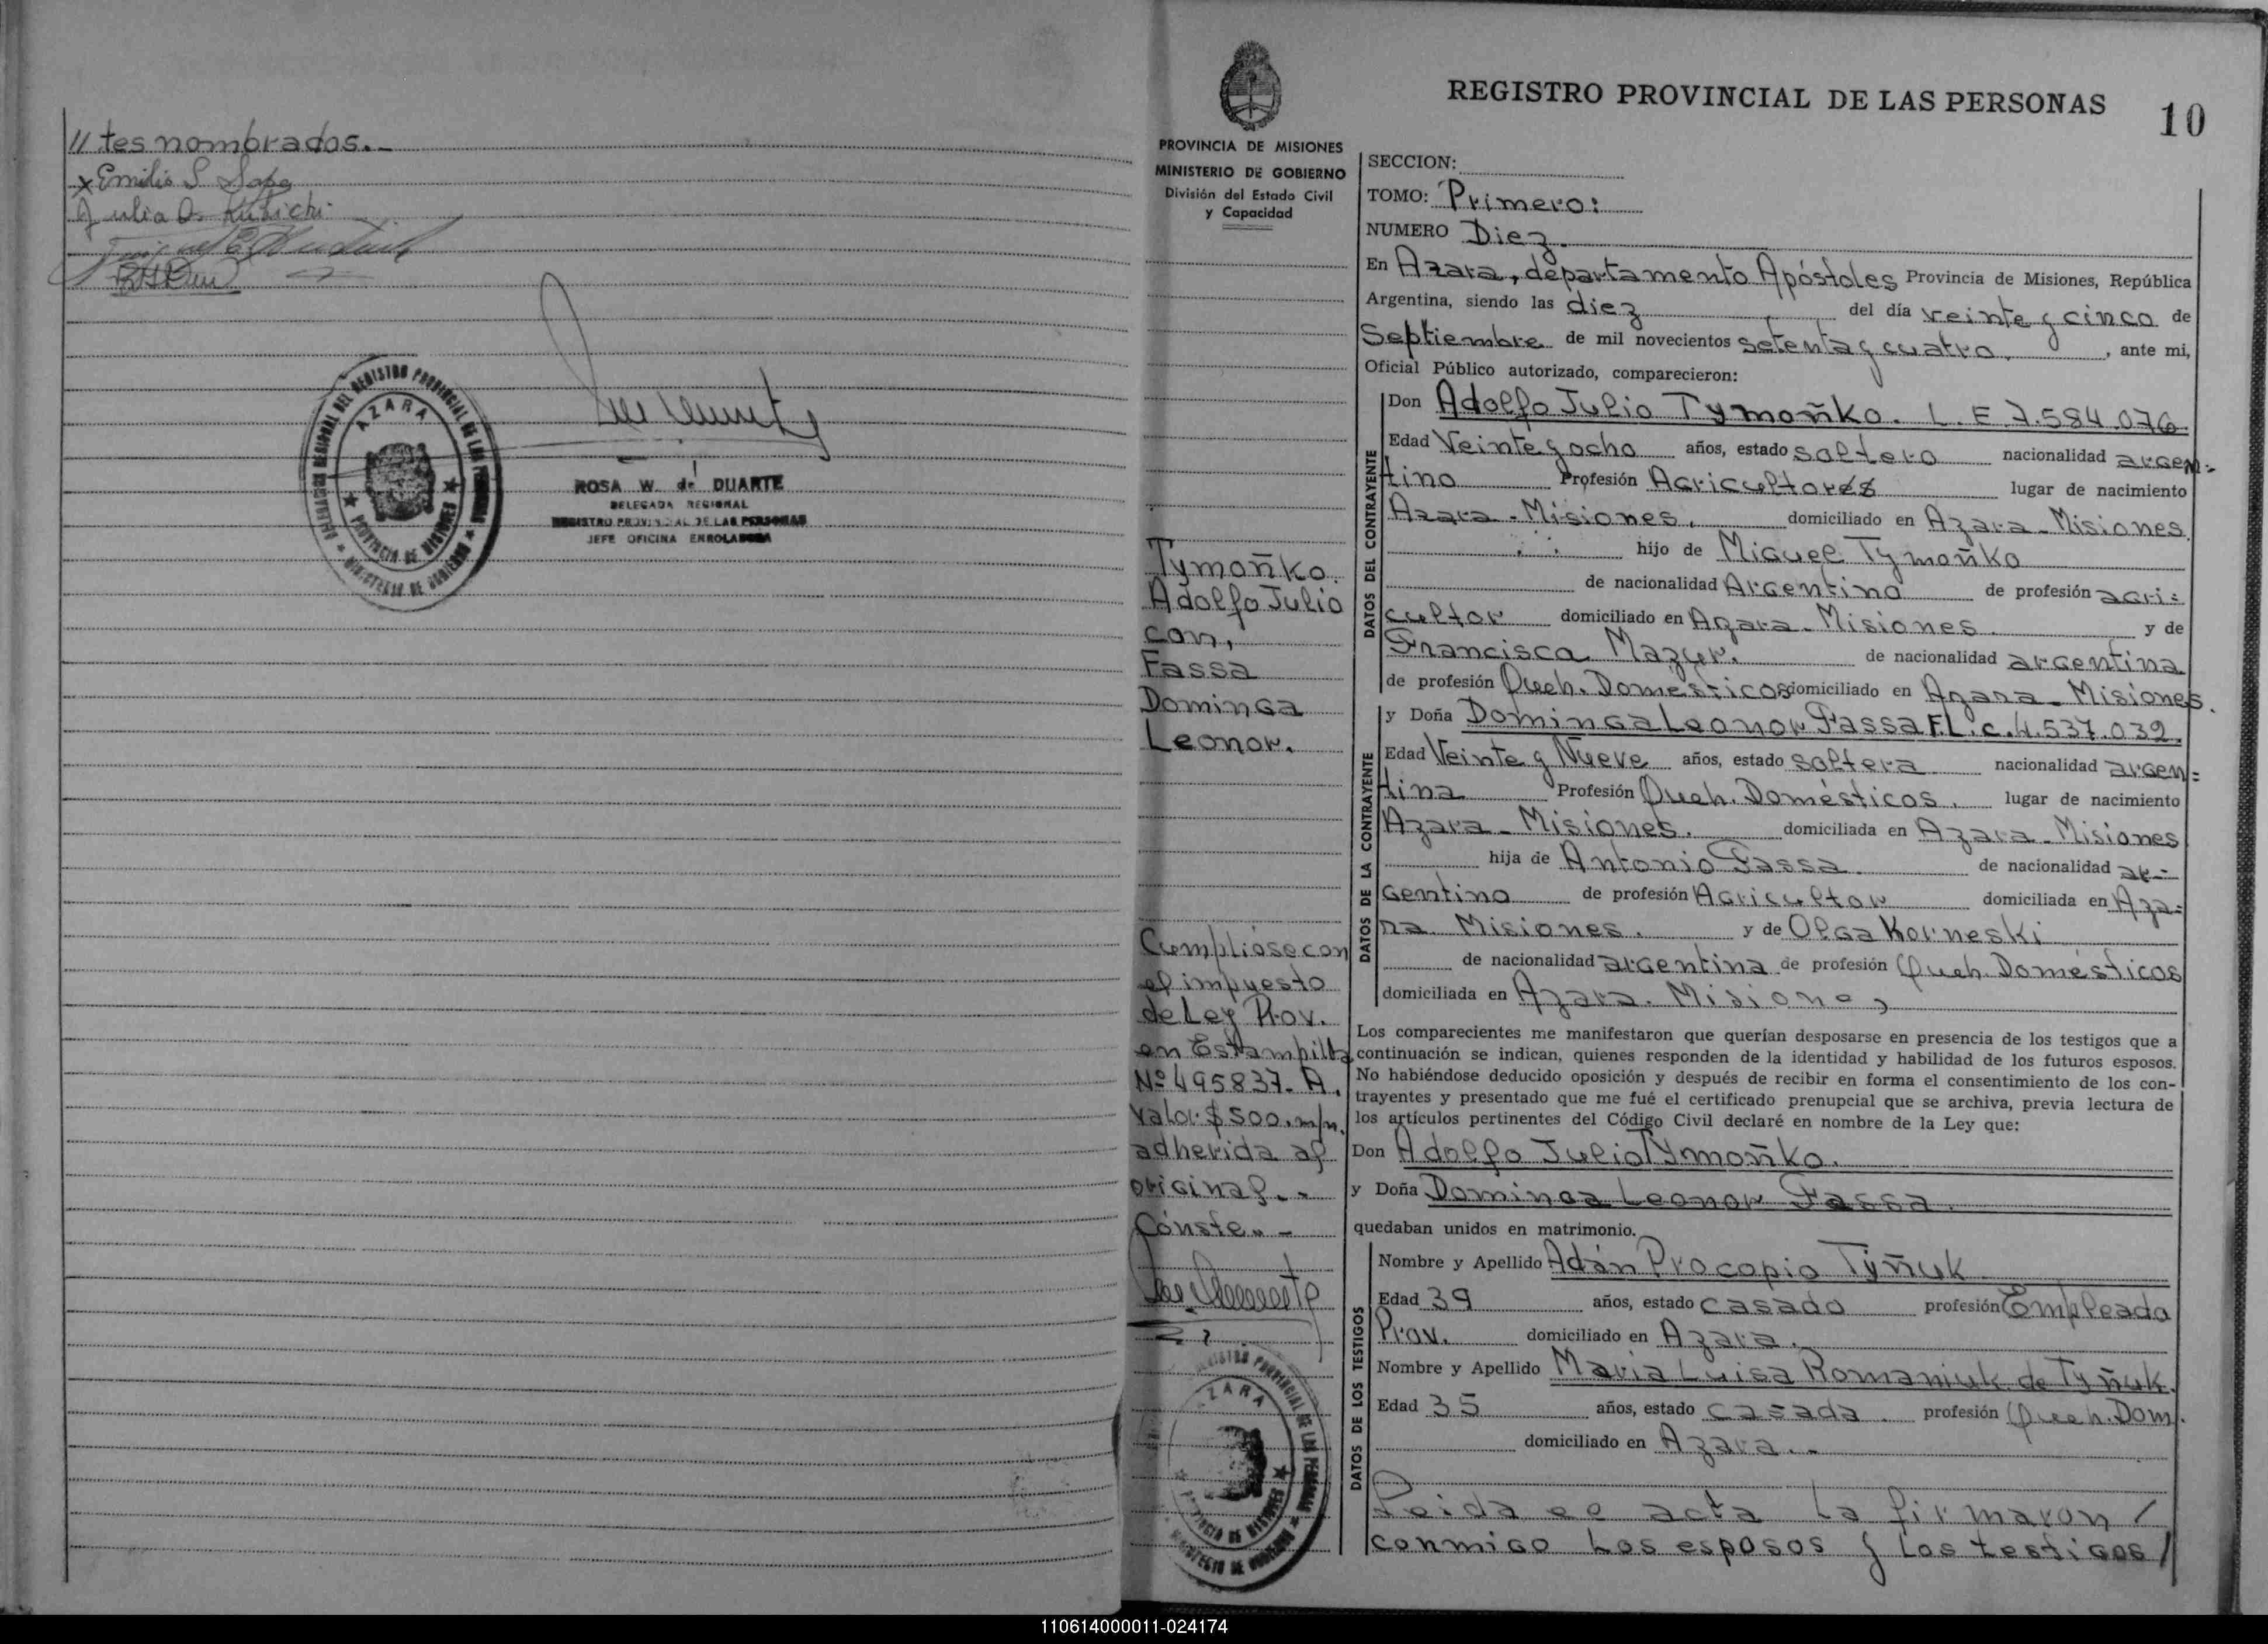 // tes nombrados.-
x Emilio S. Sapa
Julia O. Kubichi
AZARA
PROVINCIA DE MISIONES
ROSA W. de DUARTE
DELEGADA REGIONAL
REGISTRO PROVINCIAL DE LAS PERSONAS
JEFE OFICINA ENROLADORA
REGISTRO PROVINCIAL DE LAS PERSONAS 10
PROVINCIA DE MISIONES
MINISTERIO DE GOBIERNO
División del Estado Civil
y Capacidad
Tymoñko.
Adolfo Julio
con,
Fassa
Dominga
Leonor.
Cumpliose con
el impuesto
de Ley Prov.
en Estampilla
Nº 495837-A.
Valor $ 500. m/n.
adherida al
original.-
Cónste.-
SECCION:
TOMO: Primero:
NUMERO Diez.
En Azara, departamento Apóstoles Provincia de Misiones, República
Argentina, siendo las diez del día veinte y cinco de
Septiembre de mil novecientos setenta y cuatro, , ante mi,
Oficial Público autorizado, comparecieron:
DATOS DEL CONTRAYENTE
Don Adolfo Julio Tymoñko. L. E 7.584.076
Edad Veinte y ocho años, estado soltero nacionalidad argen-
tino Profesión Agricultores lugar de nacimiento
Azara - Misiones. domiciliado en Azara - Misiones.
hijo de Miguel Tymoñko
de nacionalidad Argentino de profesión agri-
cultor domiciliado en Azara - Misiones. y de
Francisca Mazur. de nacionalidad argentina
de profesión Queh. Domésticos domiciliado en Azara - Misiones.
DATOS DE LA CONTRAYENTE
y Doña Dominga Leonor Fassa F.L.c. 4.537.032.
Edad Veinte y Nueve años, estado soltera nacionalidad argen-
tina Profesión Queh. Domésticos. lugar de nacimiento
Azara - Misiones. domiciliada en Azara - Misiones
hija de Antonio Fassa de nacionalidad ar-
gentino de profesión Agricultor domiciliada en Aza-
ra Misiones. y de Olga Korneski
de nacionalidad argentina de profesión Queh. Domésticos
domiciliada en Azara. Misiones
Los comparecientes me manifestaron que querían desposarse en presencia de los testigos que a
continuación se indican, quienes responden de la identidad y habilidad de los futuros esposos.
No habiéndose deducido oposición y después de recibir en forma el consentimiento de los con-
trayentes y presentado que me fué el certificado prenupcial que se archiva, previa lectura de
los artículos pertinentes del Código Civil declaré en nombre de la Ley que:
Don Adolfo Julio Tymoñko.
y Doña Dominga Leonor Fassa.
quedaban unidos en matrimonio.
DATOS DE LOS TESTIGOS
Nombre y Apellido Adán Procopio Tyñuk
Edad 39 años, estado casado profesión Empleado
Prov. domiciliado en Azara.
Nombre y Apellido Maria Luisa Romaniuk de Tyñuk.
Edad 35 años, estado casada. profesión Queh. Dom.
domiciliado en Azara.-
Leida el acta la firmaron /
conmigo los esposos y los testigos /
110614000011-024174